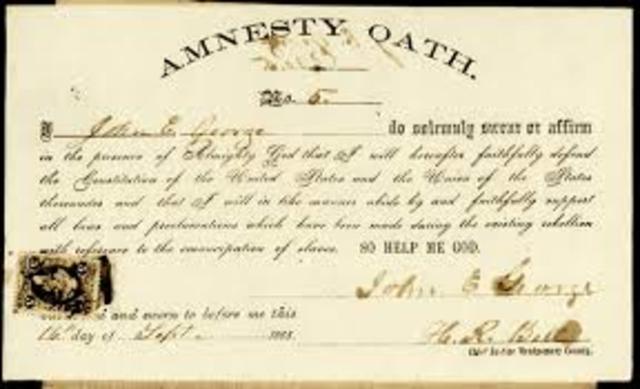 AMNESTY OATH.
No. 5.
I John E. George do solemnly swear or affirm
in the presence of Almighty God that I will hereafter faithfully defend
the Constitution of the United States and the Union of the States
thereunder and that I will in like manner abide by and faithfully support
all laws and proclamations which have been made during the existing rebellion
with reference to the emancipation of slaves. SO HELP ME GOD.
John E George
and sworn to before me this
16 day of Sept 1865
H. R. Bell
County.